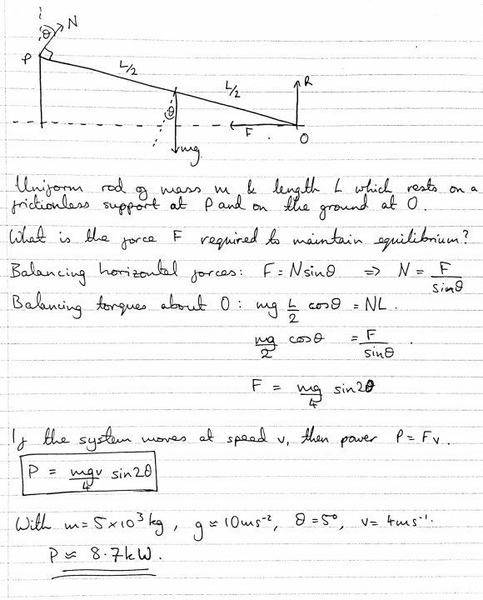 θ N
P
L/2
L/2
R
θ
F
O
mg
Uniform rod of mass m & length L which rests on a
frictionless support at P and on the ground at O.
What is the force F required to maintain equilibrium?
Balancing horizontal forces: F = N sinθ ⇒ N = F/sinθ
Balancing torques about O: mg L/2 cosθ = NL.
mg/2 cosθ = F/sinθ.
F = mg/4 sin2θ
If the system moves at speed v, then power P = Fv.
P = mgv/4 sin2θ
With m = 5×10³ kg, g ≈ 10ms⁻², θ = 5°, v = 4ms⁻¹.
P ≈ 8.7kW.